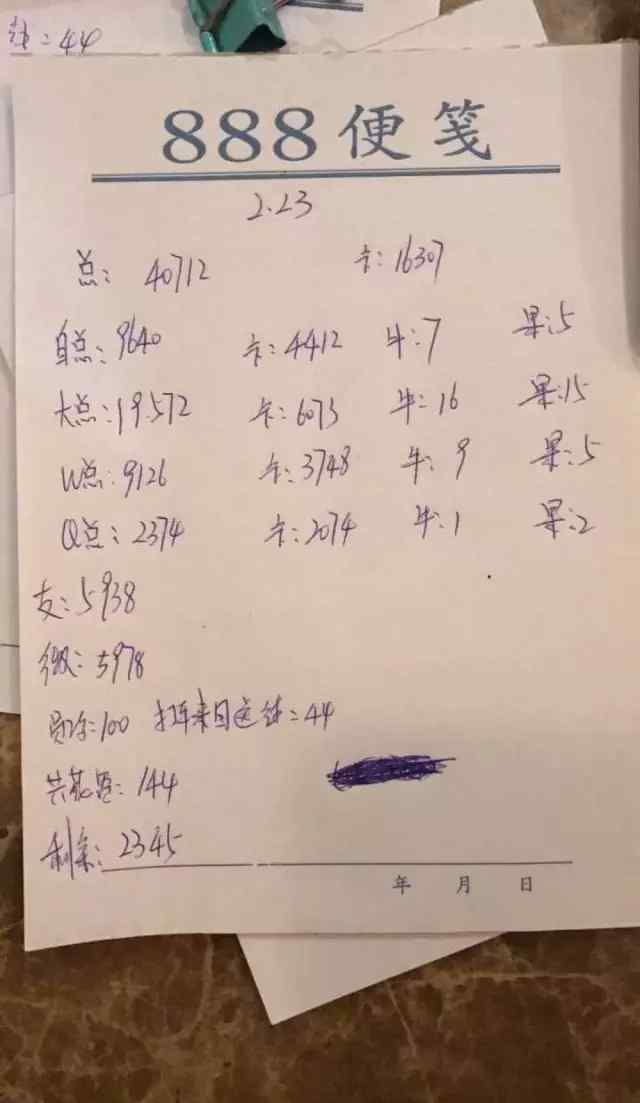 =44
888便笺
2.23
总: 40712 卡:16307
自点:9640 卡:4412 牛:7 果:5
大点:19.572 卡:6073 牛:16 果:15
W点:9126 卡:3748 牛:9 果:5
Q点:2374 卡:2074 牛:1 果:2
支:5938
微:5978
=100 打车来回送 =44
共花 :144
剩余:2345
年 月 日